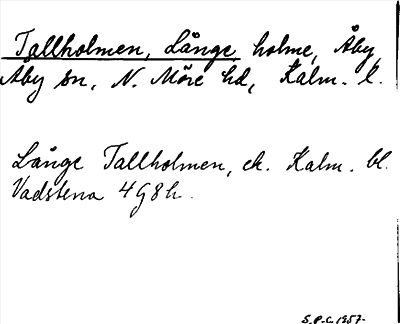 Tallholmen, Långe, holme, Åby,
Åby sn, N. Möre hd, Kalm. l.
Långe Tallholmen, ek. Kalm. bl.
Vadstena 4 G8h.
S.P.C. 1957.